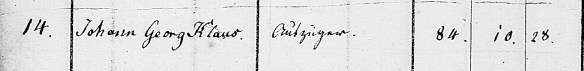 14. Johann Georg Klaus. Auszüger. 84. 10. 28.